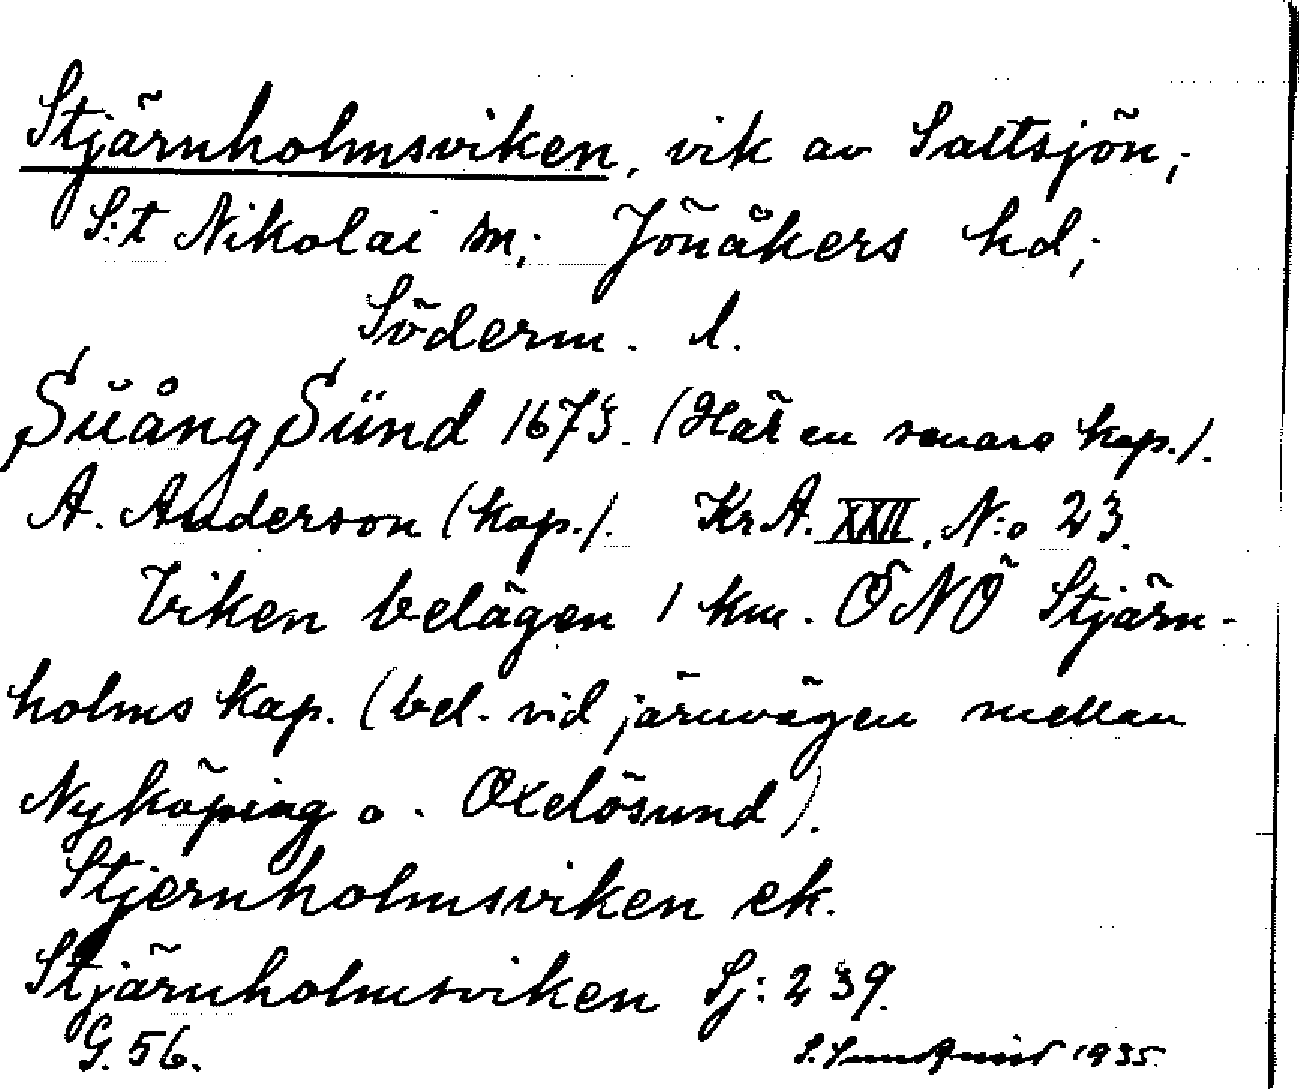 Stjärnholmsviken, vik av Saltsjön;
S:t Nikolai sn; Jönåkers hd;
Söderm. l.
Suång Sünd 1673. (Här en senare kop.).
A. Anderson (kop.). Kr.A. XXII. N:o 23.
Viken belägen 1 km. ONO Stjärn-
holms kap. (bel. vid järnvägen mellan
Nyköping o. Oxelösund).
Stjernholmsviken ek.
Stjärnholmsviken Sj: 239.
G. 56.
S. Lundqvist 1935.